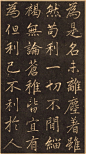 為是名未離塵著雖
然苟一切不間緇
褐無論蒼稚皆宜有
為但利己不利於人